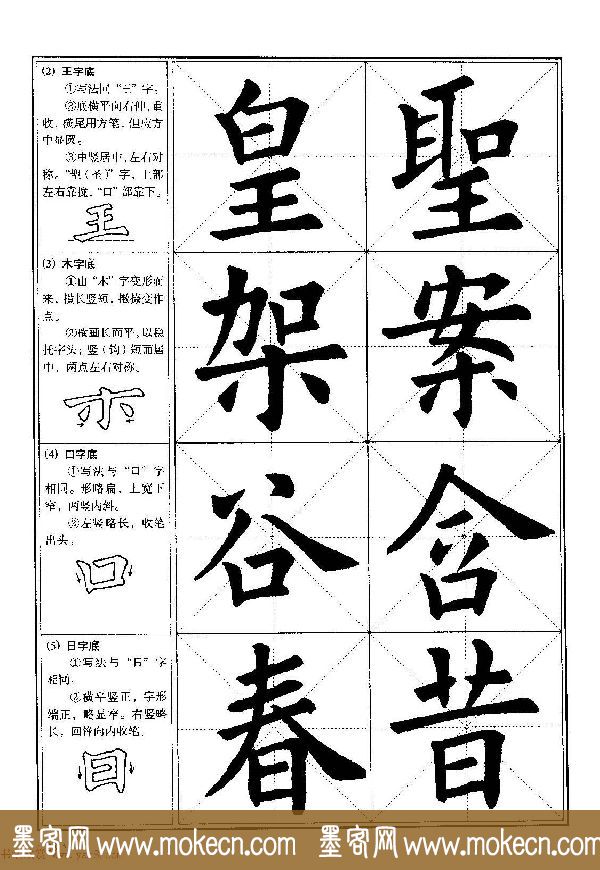 (2) 王字底
①写法同“王”字。
②底横平向右伸,重
收,横尾用方笔,但成方
中显圆。
③中竖居中,左右对
称。“聖(圣)”字,上部
左右靠拢,“口”部靠下。
王
皇 聖
(3) 木字底
①由“木”字变形而
来,横长竖短,撇捺变作
点。
②横画长而平,以稳
托字头;竖(钩)短而居
中,两点左右对称。
木
架 案
(4) 口字底
①写法与“口”字
相同。形略扁,上宽下
窄,两竖内斜。
②左竖略长,收笔
出头。
口
谷 含
(5) 日字底
①写法与“日”字
相同。
②横平竖正,字形
端正,略显窄。右竖略
长,回锋向内收笔。
日
春 昔
墨客网 www.mokecn.com 墨客网 www.mokecn.com